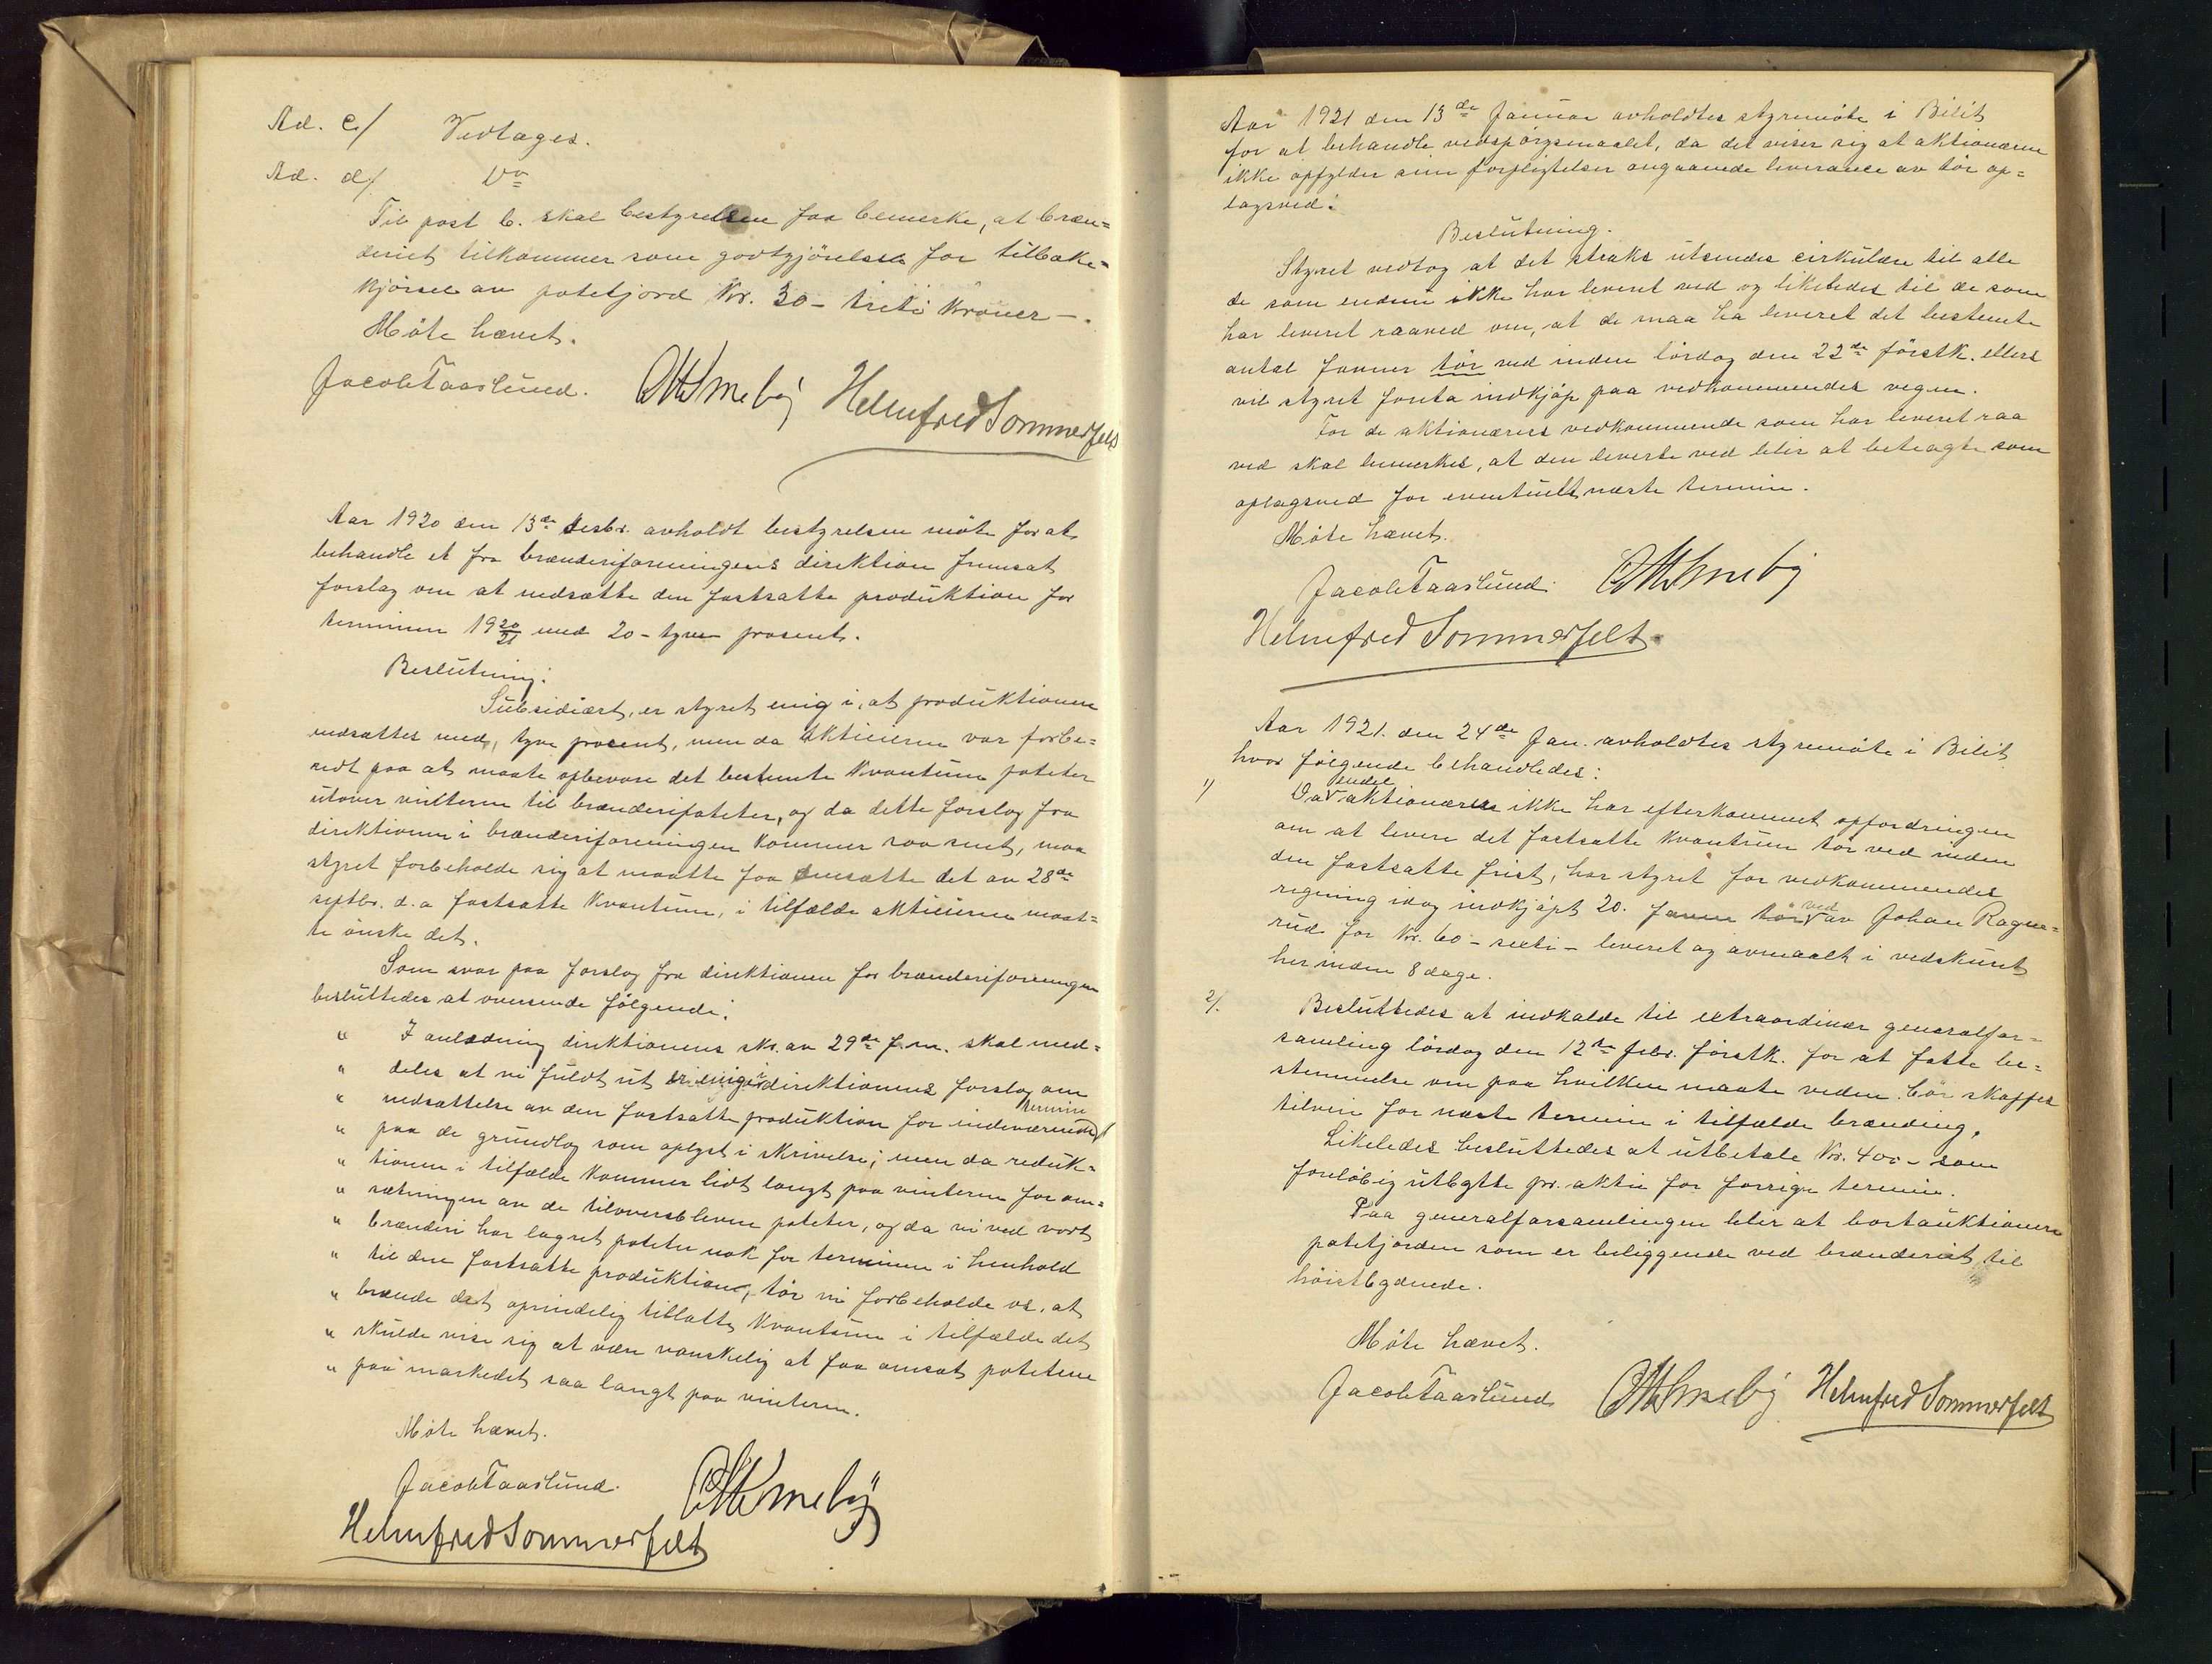 Ad. c/ Vedtages.
Ad. d/ Do
Til post b. skal bestyrelsen faa bemerke, at bræn=
deriet tilkommer som godtgjörelse for tilbake=
kjörsel av potetjord Kr. 30 - tretti kroner -.
Möte hævet.
Jacob Taaslund. Helmfred Sommerfelt
Aar 1920 den 13de desbr. avholdt bestyrelsen möte for at
behandle et fra brænderiforeningens direktion fremsat
forslag om at nedsætte den fastsatte produktion for
terminen 1920/21 med 20 - tyve prosent.
Beslutning:
Subsidiært, er styret enig i, at produktionen
nedsættes med, tyve procent, men da aktieierne var forbe=
redt paa at maate opbevare det bestemte kvantum poteter
utover vinteren til brænderipoteter, og da dette forslag fra
direktionen i brænderiforeningen kommer saa sent, maa
styret forbeholde sig at maatte faa omsætte det av 28de
septbr. d.a fastsatte kvantum, i tilfælde aktieierne maat=
te önske det.
Som svar paa forslag fra direktionen for brænderiforeningen
besluttedes at oversende fölgende:
" I anledning direktionens skr. av 29de f.m. skal med=
" deles at vi fuldt ut er enig i direktionens forslag om
" nedsættelse av den fastsatte produktion for indeværende termin
" paa de grundlag som oplyst i skrivelse; men da reduk=
" tionen i tilfælde kommer lidt langt paa vinteren for om=
" sætningen av de tiloversblevne poteter, og da vi ved vort
" brænderi har lagret poteter nok for terminen i henhold
" til den fastsatte produktion, tör vi forbeholde os, at
" brænde det oprindelig tillatte kvantum i tilfælde det
" skulde vise sig at være vanskelig at faa omsat potetene
" paa markedet saa langt paa vinteren.
Möte hævet.
Jacob Taaslund.
Helmfred Sommerfelt
Aar 1921 den 13de Januar avholdtes styremöte i Bilit
for at behandle vedspörgsmaalet, da det viser sig at aktionærene
ikke opfylder sine forpligtelser angaaende leverance av tör op=
lagsved:
Beslutning.
Styret vedtog at det straks utsendes cirkulære til alle
de som endnu ikke har levert ved og likeledes til de som
har leveret raaved om, at de maa ha leveret det bestemte
antal favner tör ved inden lördag den 22de förstk. ellers
vil styret foreta indkjöp paa vedkommendes vegne.
For de aktionærers vedkommende som har leveret raa
ved skal bemerkes, at den leverte ved blir at betragte som
oplagsved for eventuelt næste termin.
Möte hævet.
Jacob Taaslund.
Helmfred Sommerfelt
Aar 1921. den 24de Jan. avholdtes styremöte i Bilit
hvor fölgende behandledes:
1) Da endel aktionærer ikke har efterkommet opfordringen
om at levere det fastsatte kvantum tör ved inden
den fastsatte frist, har styret for vedkommendes
regning idag indkjöpt 20. favne tör ved av Johan Ragne=
rud for Kr. 60 - sexti - leveret og avmaalt i vedskuret
her inden 8 dage.
2/. Besluttedes at indkalde til extraordinær generalfor=
samling lördag den 12te febr. förstk. for at fatte be=
stemmelse om paa hvilken maate veden bör skaffes
tilveie for næste termin i tilfælde brænding,
Likeledes besluttedes at utbetale Kr. 400 - som
forelöbig utbytte pr. aktie for forrige termin.
Paa generalforsamlingen blir at bortauktionere
potetjorden som er beliggende ved brænderiet til
höistbydende.
Möte hævet.
Jacob Taaslund Helmfred Sommerfelt